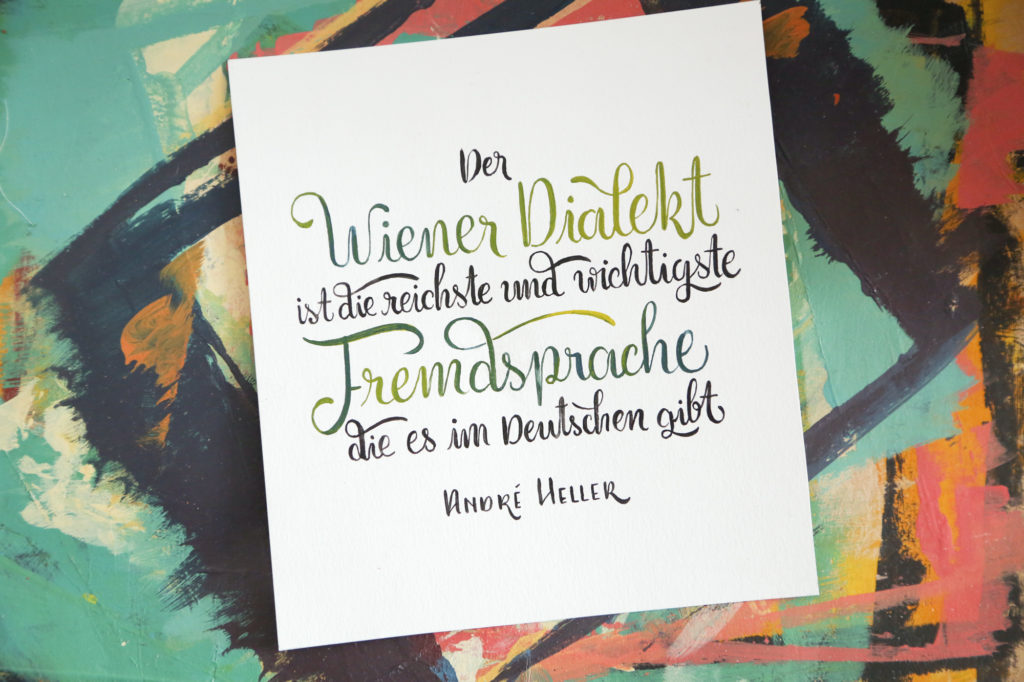 Der
Wiener Dialekt
ist die reichste und wichtigste
Fremdsprache
die es im Deutschen gibt
André Heller